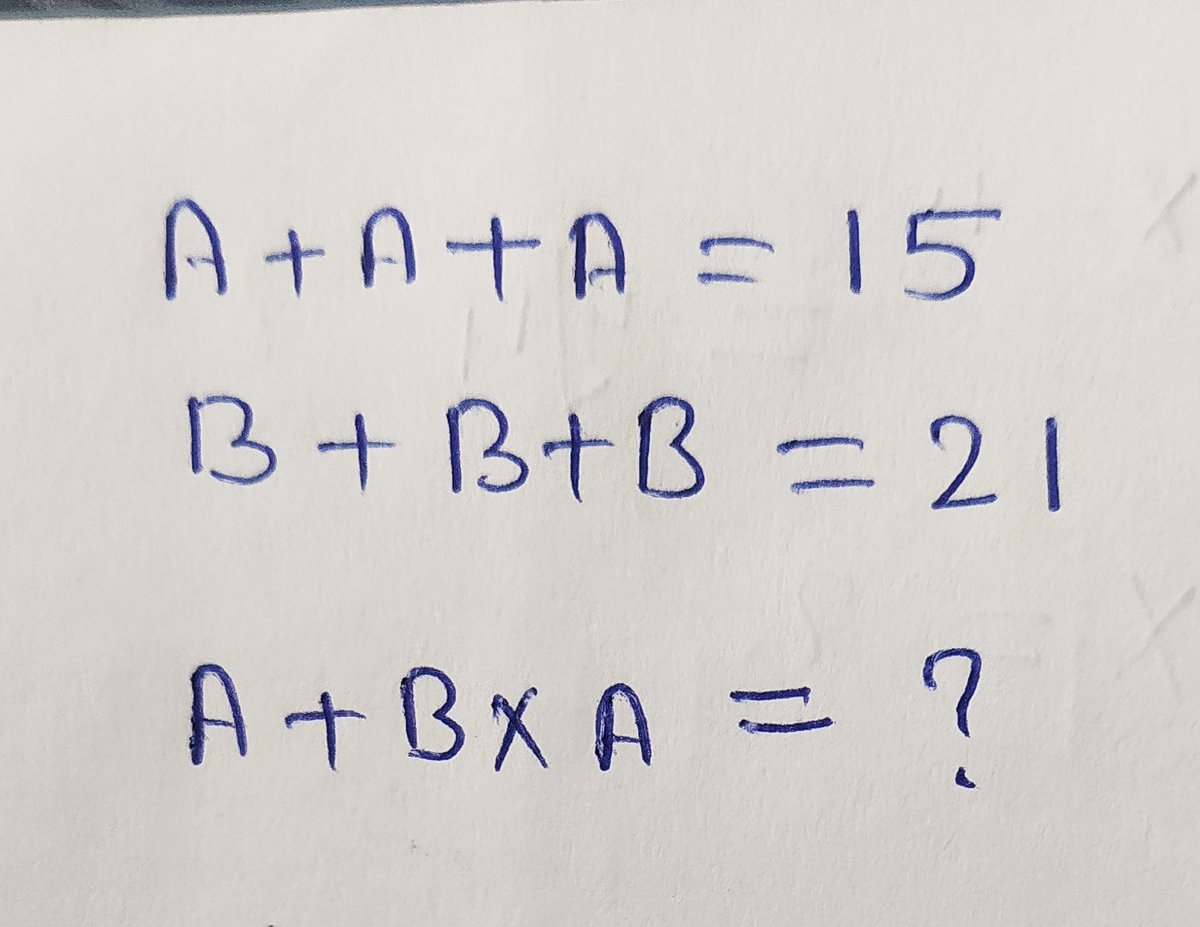 A + A + A = 15
B + B + B = 21
A + B x A = ?